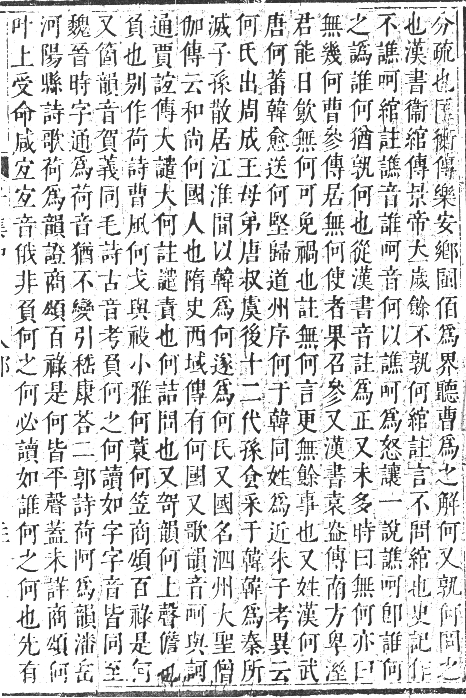 分疏也匡衡傳樂安鄉國佰爲界聽曹爲之解何又孰何問之
也漢書衞綰傳景帝大歲餘不孰何綰註言不問綰也史記作
不譙呵綰註譙音誰呵音何以譙呵爲怒讓一說譙呵卽誰何
之譌誰何猶孰何也從漢書音註爲正又未多時曰無何亦曰
無幾何曹參傳居無何使者果召參又漢書袁盎傳南方卑溼
君能日飮無何可免禍也註無何言更無餘事也又姓漢何武
唐何蕃韓愈送何堅歸道州序何于韓同姓爲近朱子考異云
何氏出周成王母弟唐叔虞後十二代孫食采于韓韓爲秦所
滅子孫散居江淮間以韓爲何遂爲何氏又國名泗州大聖僧
伽傳云和尚何國人也隋史西域傳有何國又歌韻音呵與訶
通賈誼傳大譴大何註譴責也何詰問也又哿韻何上聲儋也
負也别作荷詩曹風何戈與祋小雅何蓑何笠商頌百祿是何
又箇韻音賀義同毛詩古音考負何之何讀如字字音皆同至
魏晉時字通爲荷音猶不變引嵇康荅二郭詩荷阿爲韻潘岳
河陽縣詩歌荷爲韻證商頌百祿是何皆平聲蓋未詳商頌何
叶上受命咸宐宐音俄非負何之何必讀如誰何之何也先有